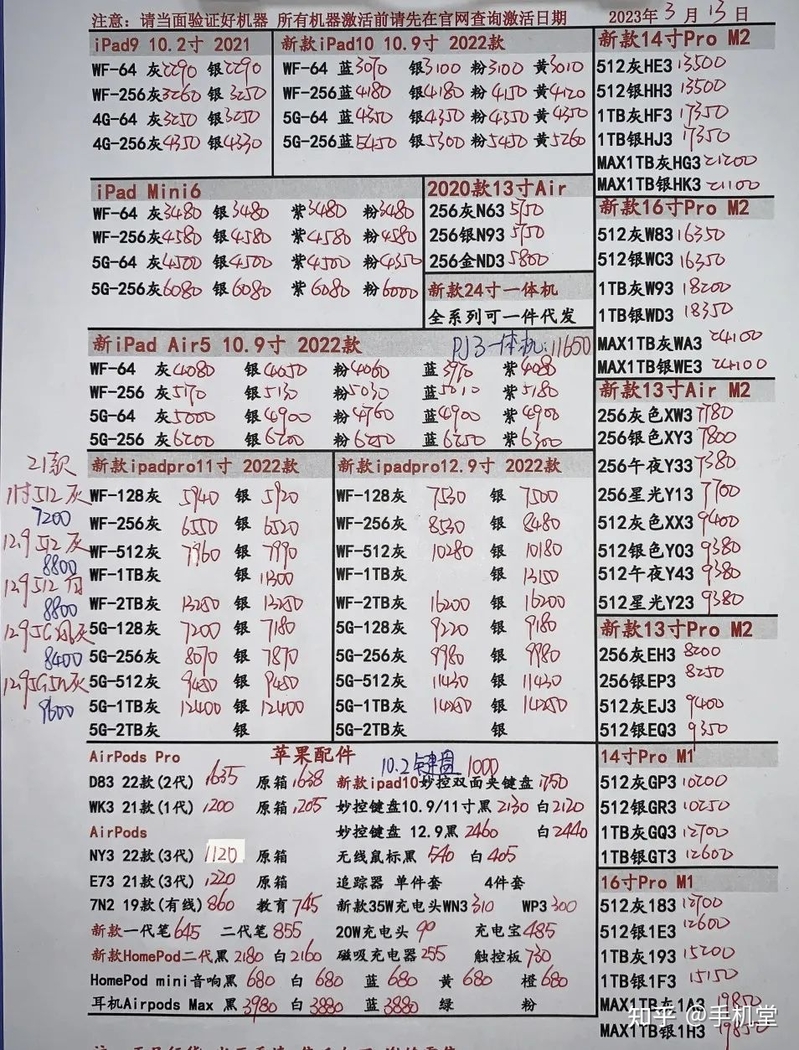 注意：请当面验证好机器 所有机器激活前请先在官网查询激活日期
2023年3月13日
iPad9 10.2寸 2021
WF-64 灰2290 银2290
WF-256灰3260 银3250
4G-64 灰3250 银3250
4G-256灰4350 银4330
新款iPad10 10.9寸 2022款
WF-64 蓝3070 银3100 粉3100 黄3010
WF-256蓝4180 银4180 粉4150 黄4120
5G-64 蓝4350 银4350 粉4350 黄4350
5G-256蓝5450 银5300 粉5450 黄5260
iPad Mini6
WF-64 灰3480 银3480 紫3480 粉3480
WF-256灰4580 银4580 紫4580 粉4580
5G-64 灰4500 银4500 紫4500 粉4350
5G-256灰6080 银6080 紫6080 粉6000
2020款13寸Air
256灰N63 5750
256银N93 5750
256金ND3 5800
新款24寸一体机
全系列可一件代发
PJ3一体机:11650
新iPad Air5 10.9寸 2022款
WF-64 灰4080 银4050 粉4060 蓝3970 紫4080
WF-256 灰5170 银5130 粉5030 蓝5010 紫5180
5G-64 灰5000 银4900 粉4760 蓝4900 紫4900
5G-256 灰6200 银6200 粉6250 蓝6250 紫6300
21款
11寸512灰
7200
12.9 512 灰
8800
12.9 512 白
8800
8400
9600
新款ipadpro11寸 2022款
WF-128灰 5940 银 5920
WF-256灰 6550 银 6520
WF-512灰 7960 银 7990
WF-1TB灰 银 11300
WF-2TB灰 13250 银 13250
5G-128灰 7200 银 7180
5G-256灰 8070 银 7870
5G-512灰 9450 银 9450
5G-1TB灰 12400 银 12400
5G-2TB灰 银
新款ipadpro12.9寸 2022款
WF-128灰 7530 银 7500
WF-256灰 8530 银 8480
WF-512灰 10280 银 10180
WF-1TB灰 银 13150
WF-2TB灰 16200 银 16200
5G-128灰 9220 银 9180
5G-256灰 9980 银 9980
5G-512灰 11430 银 11430
5G-1TB灰 14250 银 14250
5G-2TB灰 银
苹果配件
10.2键盘 1000
AirPods Pro
D83 22款(2代) 1635 原箱1638
WK3 21款(1代) 1200 原箱1205
AirPods
NY3 22款(3代) 1120 原箱
E73 21款(3代) 1220 原箱
7N2 19款(有线)860 教育745
新款一代笔645 二代笔855
新款HomePod二代黑2180 白2160
新款ipad10妙控双面夹键盘1750
妙控键盘10.9/11寸黑2130 白2120
妙控键盘 12.9黑2460 白2440
无线鼠标黑 540 白405
追踪器 单件套 4件套
新款35W充电头WN3 310 WP3 300
20W充电头 90 充电宝485
磁吸充电器255 触控板730
HomePod mini音响黑680 白 680 蓝 680 黄 680 橙680
耳机Airpods Max 黑3980 白3880 蓝3880 绿 粉
新款14寸Pro M2
512灰HE3 13500
512银HH3 13500
1TB灰HF3 17350
1TB银HJ3 17350
MAX1TB灰HG3 21200
MAX1TB银HK3 21100
新款16寸Pro M2
512灰W83 16350
512银WC3 16350
1TB灰W93 18200
1TB银WD3 18350
MAX1TB灰WA3 24100
MAX1TB银WE3 24100
新款13寸Air M2
256灰色XW3 7780
256银色XY3 7800
256午夜Y33 7380
256星光Y13 7700
512灰色XX3 9400
512银色Y03 9380
512午夜Y43 9380
512星光Y23 9380
新款13寸Pro M2
256灰EH3 8200
256银EP3 8250
512灰EJ3 9400
512银EQ3 9350
14寸Pro M1
512灰GP3 10200
512银GR3 10250
1TB灰GQ3 12700
1TB银GT3 12600
16寸Pro M1
512灰183 12700
512银1E3 12600
1TB灰193 15200
1TB银1F3 15150
MAX1TB灰1A3 19850
MAX1TB银1H3 19850
知乎 @手机堂